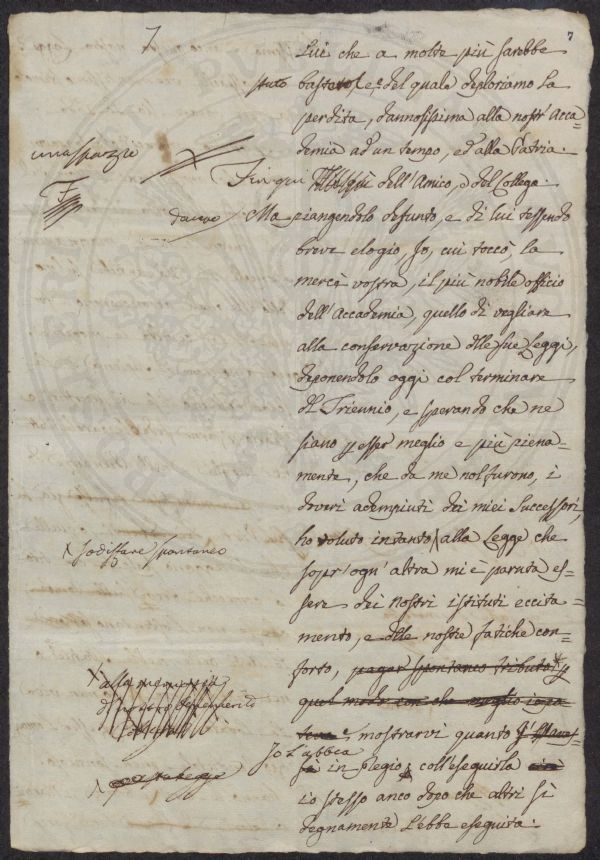 7
7
Lui che a molte più sarebbe
bastato, e del quale deploriamo la
perdita, dannosissima alla nostr' Acca=
demia ad un tempo, ed alla Patria.
Fin qui dell'Amico, e del Collega.
Ma piangendolo defunto, e di lui tessendo
breve elogio, Io, cui toccò, la
mercè vostra, il più nobile officio
dell'Accademia, quello di vegliare
alla conservazione delle sue Leggi,
deponendolo oggi col terminare
del Triennio, e sperando che ne
siano per esser meglio e più piena=
mente, che da me nol furono, i
doveri adempiuti dei miei Successori,
ho voluto intanto alla Legge che
sopr'ogn'altra mi è paruta es=
sere dei nostri istituti eccita=
mento, e delle nostre fatiche con=
forto, pagar spontaneo tributo, e
quel modo con che meglio io po
mostrarvi quanto
Io l'abbia
in pregio coll'eseguirla
io stesso anco dopo che altri sì
degnamente l'ebbe eseguita.
una spazio
F
da capo
sodisfare spontaneo
alla memoria